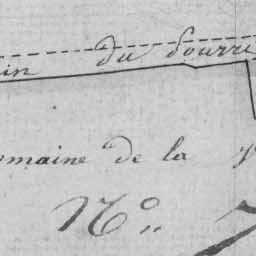 in du Fourre
maine de la
No